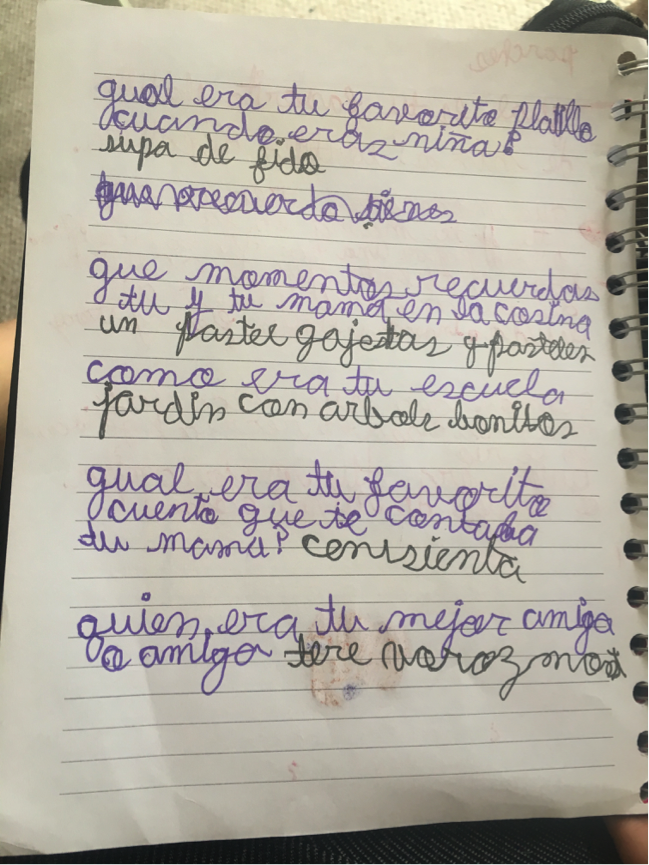 qual era tu favorito platillo
cuando eras niña?
supa de fido
que momentos recuerdas
tu y tu mama en la cosina
un pastel gajetas y pasteles
como era tu escuela
jardin con arbols bonitos
qual era tu favorito
cuento que te contaba
tu mama? cenisienta
quien era tu mejor amiga
o amigo tere